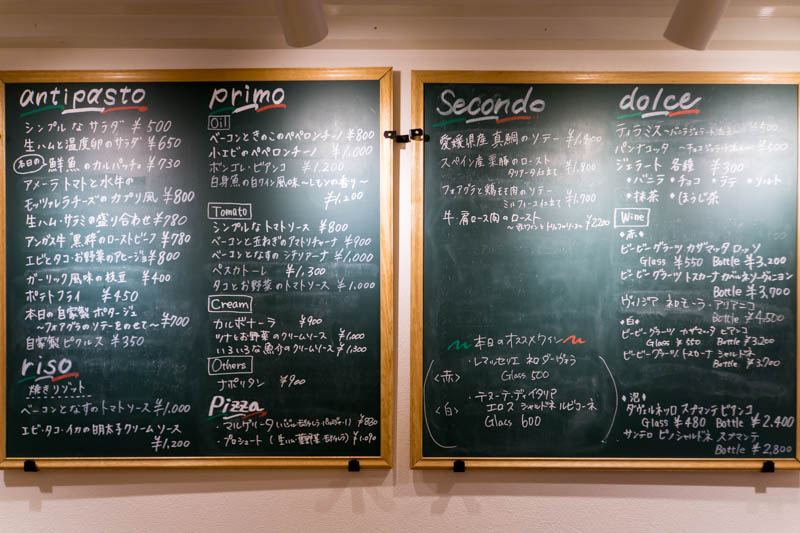 antipasto
シンプルなサラダ ¥500
生ハムと温度卵のサラダ ¥650
本日の 鮮魚のカルパッチョ ¥730
アメーラトマトと水牛の
モッツァレラチーズのカプリ風 ¥800
生ハム・サラミの盛り合わせ ¥780
アンガス牛 黒粋のローストビーフ ¥780
エビとタコ・お野菜のアヒージョ ¥800
ガーリック風味の枝豆 ¥400
ポテトフライ ¥450
本日の自家製ポタージュ
〜フォアグラのソテーをのせて〜 ¥700
自家製ピクルス ¥350
riso
焼きリゾット
ベーコンとなすのトマトソース ¥1,000
エビ・タコ・イカの明太子クリームソース
¥1,200
primo
Oil
ベーコンときのこのペペロンチーノ ¥800
小エビのペペロンチーノ ¥1,000
ボンゴレ・ビアンコ ¥1,200
白身魚の白ワイン風味〜レモンの香り〜
¥1,200
Tomato
シンプルなトマトソース ¥800
ベーコンと玉ねぎのアマトリチャーナ ¥900
ベーコンとなすのシチリアーナ ¥1,000
ペスカトーレ ¥1,300
タコとお野菜のトマトソース ¥1,000
Cream
カルボナーラ ¥900
ツナとお野菜のクリームソース ¥1,000
いろいろな魚介のクリームソース ¥1,300
Others
ナポリタン ¥900
Pizza
・マルゲリータ ¥880
・プロシュート (生ハム
Secondo
愛媛県産 真鯛のソテー
スペイン産 栗豚のロースト
フォアグラと鶏もも肉のソテー
¥1,700
牛・肩ロース肉のロースト
¥2,200
〜本日のオススメワイン〜
〈赤〉
・レ・マッセリエ ネロ・ダーヴォラ
Glass 500
〈白〉
・テヌーテ・ディタイリア
エロス シャルドネ ルビコーネ
Glass 600
dolce
ティラミス ¥500
パンナコッタ ¥500
ジェラート 各種 ¥300
*バニラ *チョコ *ラテ *ソルト
*抹茶 *ほうじ茶
Wine
*赤*
ビービーグラーツ カザマッタ ロッソ
Glass ¥550 Bottle ¥3,200
ビービーグラーツ トスカーナ カベルネソーヴィニヨン
Bottle ¥3,700
ヴィジリア
Bottle ¥4,500
*白*
ビービーグラーツ カザマッタ ビアンコ
Glass ¥550 Bottle ¥3,200
ビービーグラーツ トスカーナ シャルドネ
Bottle ¥3,700
*泡*
ダヴェルネッロ スプマンテ ビアンコ
Glass ¥480 Bottle ¥2,400
サンテロ ピノシャルドネ スプマンテ
Bottle ¥2,800